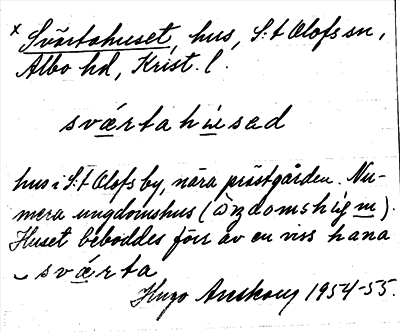 x Svärtahuset, hus, S:t Olofs sn,
Albo hd, Krist. l.
sværtahuse̱d
hus i S:t Olofs by, nära prästgården. Nu-
mera ungdomshus (
Huset beboddes förr av en viss hana
sværta
Hugo Areskoug 1954-55.